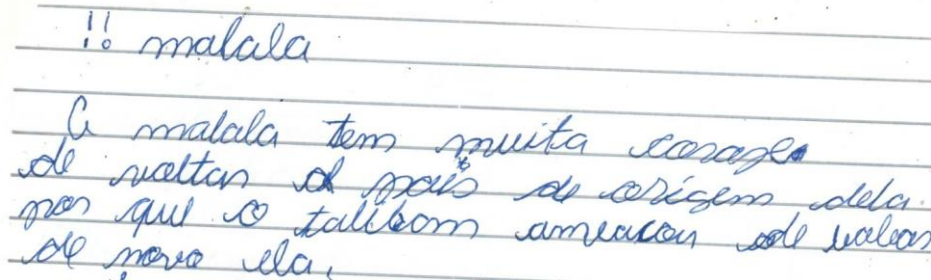 !! malala
A malala tem muita corage
de voltar a pais de origem dela.
por que o talibom ameacou de
de novo ela.